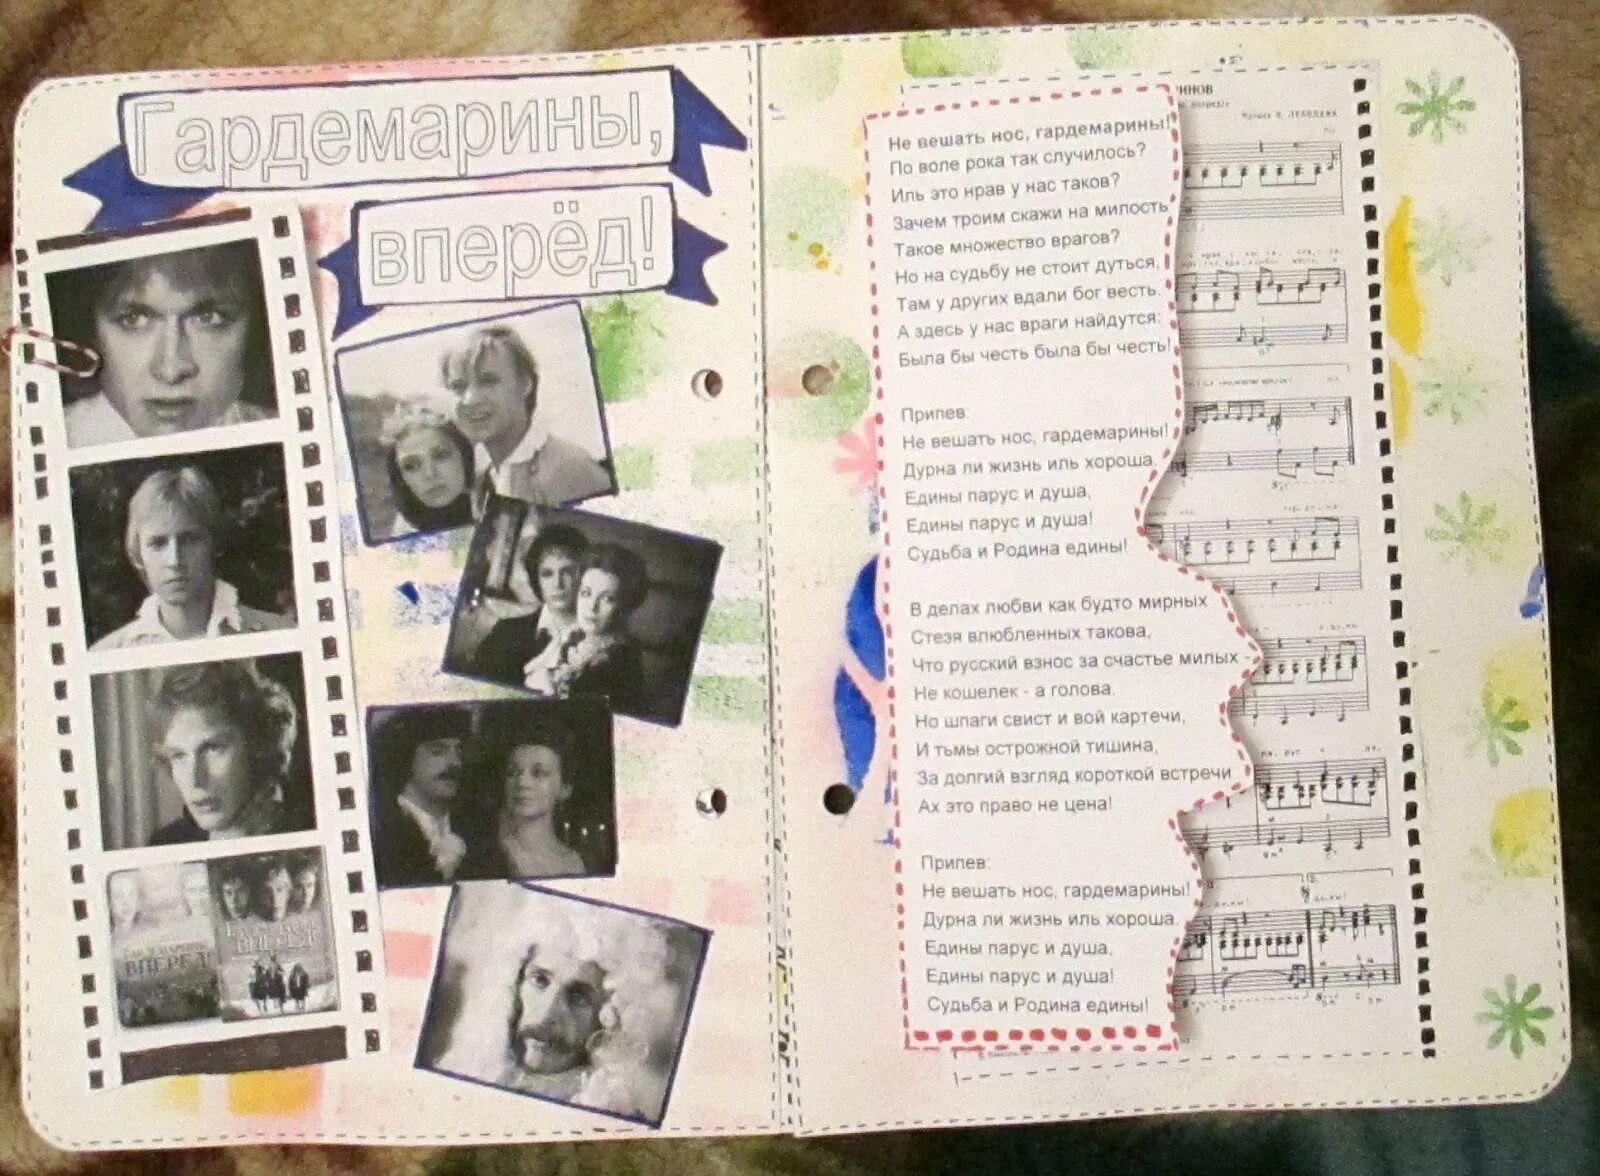 Гардемарины,
вперёд!
ВПЕРЕД
ВПЕРЕД
ИНОВ
Музыка В. ЛЕБЕДЕВА
Не вешать нос, гардемарины!
По воле рока так случилось?
Иль это нрав у нас таков?
Зачем троим скажи на милость
Такое множество врагов?
Но на судьбу не стоит дуться,
Там у других вдали бог весть.
А здесь у нас враги найдутся:
Была бы честь была бы честь!
Припев:
Не вешать нос, гардемарины!
Дурна ли жизнь иль хороша,
Едины парус и душа,
Едины парус и душа!
Судьба и Родина едины!
В делах любви как будто мирных
Стезя влюбленных такова,
Что русский взнос за счастье милых -
Не кошелек - а голова.
Но шпаги свист и вой картечи,
И тьмы острожной тишина,
За долгий взгляд короткой встречи
Ах это право не цена!
Припев:
Не вешать нос, гардемарины!
Дурна ли жизнь иль хороша,
Едины парус и душа,
Едины парус и душа!
Судьба и Родина едины!